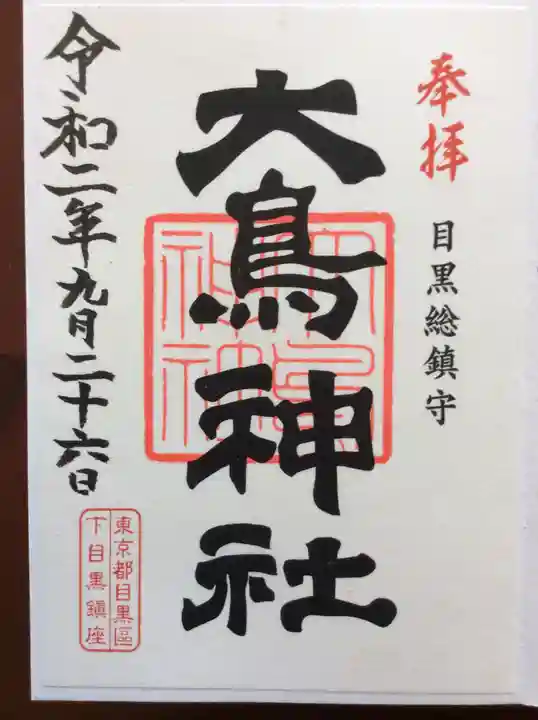 奉拝
目黒総鎮守
大鳥神社
大鳥神社
令和二年九月二十六日
東京都目黒區
下目黒鎮座